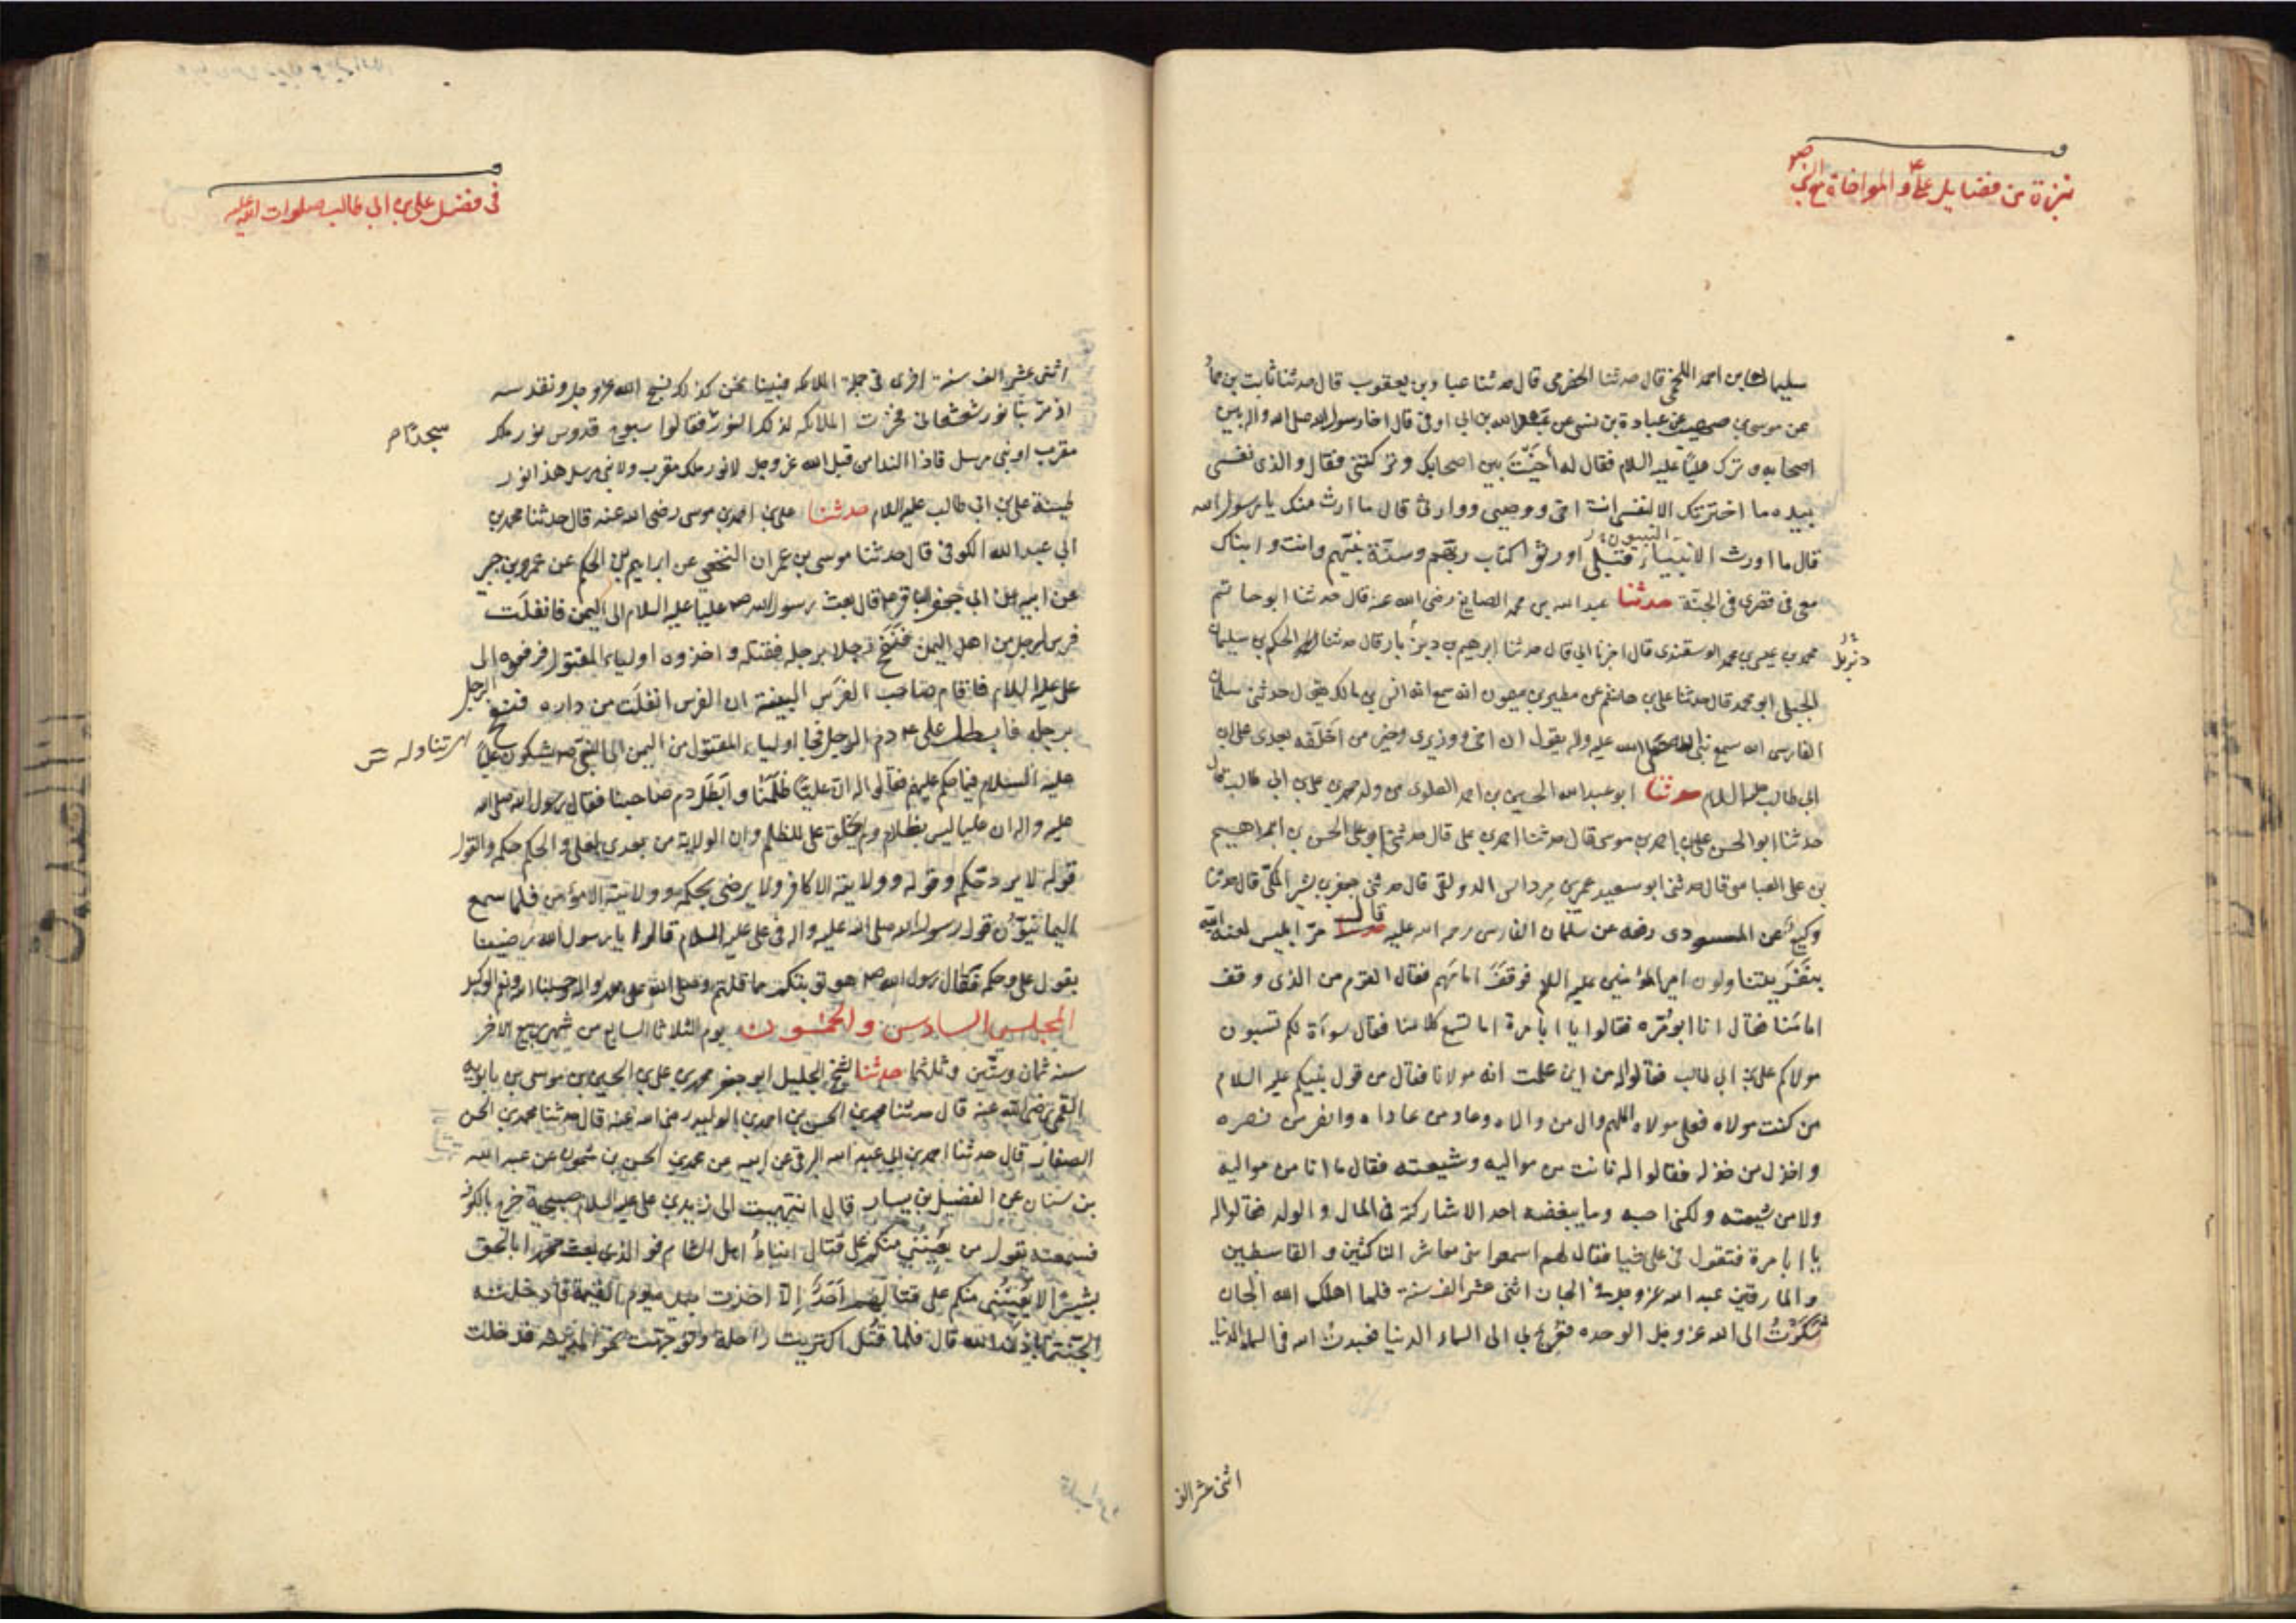 نبذة من فضايل علي ع والمواخاة مع النبي ص
سليمان بن احمد اللخمي قال حدثنا الحضرمي قال حدثنا عباد بن يعقوب قال حدثنا ثابت بن حماد
عن موسى بن صهيب عن عبادة بن نسى عن عبد الله بن ابي اوفى قال اخا رسول الله صلى الله واله بين
اصحابه وترك عليا عليه السلام فقال له أخيت بين اصحابك وتركتني فقال والذى نفسى
بيده ما اخترتك الا لنفسى انت اخى ووصيى ووارثى قال ما ارث منك يا رسول الله
النبيون
قال ما اورث الانبياء قبلى اورثوا كتاب ربهم وسنة نبيهم وانت وابناك
معى فى قصرى فى الجنة حدثنا عبد الله بن محمد الصايغ رضى الله عنه قال حدثنا ابو حاتم
محمد بن عيسى بن محمد الوسقندى قال اخبرنا ابى قال حدثنا ابرهيم بن ديزيل قال حدثنا الحكم بن سليمان
الجبلى ابو محمد قال حدثنا على بن هاشم عن مطير بن ميمون انه سمع انس بن مالك يقول حدثنى سلمان
الفارسى انه سمع نبى الله صلى الله عليه واله يقول ان اخى ووزيرى وخير من اخلفه بعدى على بن
ابى طالب عليه السلام حدثنا ابو عبد الله الحسين بن احمد العلوى من ولد محمد بن على بن ابى طالب قال
حدثنا ابو الحسن على بن احمد بن موسى قال حدثنا احمد بن على قال حدثنى ابو على الحسن بن ابراهيم
بن على العباسى قال حدثنى ابو سعيد عمير بن مرداس الدولقى قال حدثنى جعفر بن بشير المكى قال حدثنا
وكيع عن المسعودى رفعه عن سلمان الفارسى رحمه الله عليه قال مر ابليس لعنه الله
بنفر يتناولون امير المؤمنين عليه السلم فوقف امامهم فقال القوم من الذى وقف
امامنا فقال انا ابو مره فقالوا يا ابا مرة اما تسمع كلامنا فقال سوأة لكم تسبون
مولاكم على بن ابى طالب فقالوا له من اين علمت انه مولانا فقال من قول نبيكم عليه السلام
من كنت مولاه فعلى مولاه اللهم وال من والاه وعاد من عاداه وانصر من نصره
واخذل من خذله فقالوا له فانت من مواليه وشيعته فقال ما انا من مواليه
ولا من شيعته ولكنى احبه وما يبغضه احد الا شاركته فى المال والولد فقالوا له
يا ابا مرة فتقول فى على شيا فقال لهم اسمعوا منى معاشر الناكثين والقاسطين
والمارقين عبدت الله عز وجل فى الجان اثنى عشر الف سنة فلما اهلك الله الجان
شكوت الى الله عز وجل الوحده فعرج بى الى السماء الدنيا فعبدت الله فى السماء الدنيا
اثنى عشر الف
فى فضل على بن ابى طالب صلوات الله عليه
اثنى عشر الف سنة اخرى فى جملة الملائكه فبينا نحن كذلك نسبح الله عز وجل ونقدسه
اذ مر بنا نور شعشعانى فخرت الملائكه لذلك النور فقالوا سبوح قدوس نور ملك
سجدا
مقرب او نبى مرسل فاذا الندا من قبل الله عز وجل لا نور ملك مقرب ولا نبى مرسل هذا نور
طينة على بن ابى طالب عليه السلام حدثنا على بن احمد بن موسى رضى الله عنه قال حدثنا محمد بن
ابى عبد الله الكوفى قال حدثنا موسى بن عمران النخعى عن ابراهيم بن الحكم عن عمرو بن جبير
عن ابيه عن ابى جعفر الباقر ع قال بعث رسول الله ص عليا عليه السلام الى اليمن فانفلت
فرس لرجل من اهل اليمن فنفح رجلا برجله فقتله واخذوه اولياء المقتول فرفعوه الى
على عليه السلام فاقام صاحب الفرس البينة ان الفرس انفلت من داره فنفح الرجل
برجله فابطل على ع دم الرجل فجا اولياء المقتول من اليمن الى النبى ص يشكون عليا
عليه السلام فيما حكم عليهم فقالوا ان عليا ظلمنا وابطل دم صاحبنا فقال رسول الله صلى الله
عليه واله ان عليا ليس بظلام ولم يخلق على للظلم وان الولاية من بعدى لعلى والحكم حكمه والقول
قوله لا يرد حكمه وقوله وولايته الا كافر ولا يرضى بحكمه وولايته الا مؤمن فلما سمع
اليمانيون قول رسول الله صلى الله عليه واله فى على عليه السلام قالوا يا رسول الله رضينا
بقول على وحكمه فقال رسول الله ص هو توبتكم مما قلتم وصلى الله على محمد واله وحسبنا الله ونعم الوكيل
المجلس السادس والخمسون يوم الثلاثا السابع من شهر ربيع الاخر
سنه ثمان وستين وثلثمائه حدثنا الشيخ الجليل ابو جعفر محمد بن على بن الحسين بن موسى بن بابويه
القمى رضى الله عنه قال حدثنا محمد بن الحسن بن احمد بن الوليد رضى الله عنه قال حدثنا محمد بن الحسن
الصفار قال حدثنا احمد بن ابى عبد الله البرقى عن ابيه عن محمد بن الحسن بن شمون عن عبد الله
بن سنان عن الفضيل بن يسار قال انتهيت الى زيد بن على عليه السلام صبيحة خرج بالكوفه
فسمعته يقول من يعيننى منكم على قتال انباط اهل الشام فو الذى بعث محمدا بالحق
بشيرا لا يعيننى منكم على قتالهم احد إلا اخذت بيده يوم القيمة فادخلته
الجنة باذن الله قال فلما قتل اكتريت راحلة وتوجهت نحو المدينه فدخلت